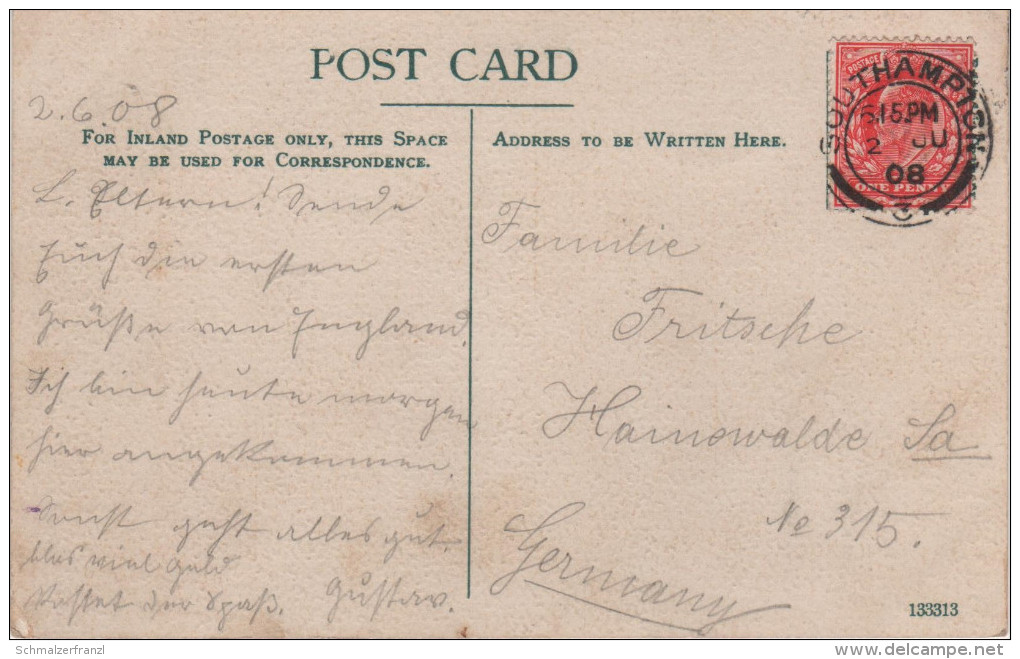 POST CARD
2.6.08
FOR INLAND POSTAGE ONLY, THIS SPACE
MAY BE USED FOR CORRESPONDENCE.
L. Eltern! Sende
Euch die ersten
Grüße von England.
Ich bin heute morgen
hier angekommen.
Sonst geht alles gut.
blos viel Geld
kostet der Spaß. Gustav.
ADDRESS TO BE WRITTEN HERE.
POSTAGE
SOUTHAMPTON
6.15.PM
2 JU
08
3
ONE PENNY
Familie
Fritsche
Hainewalde Sa
No 315.
Germany
133313
Schmalzerfranzl
delcampe.net